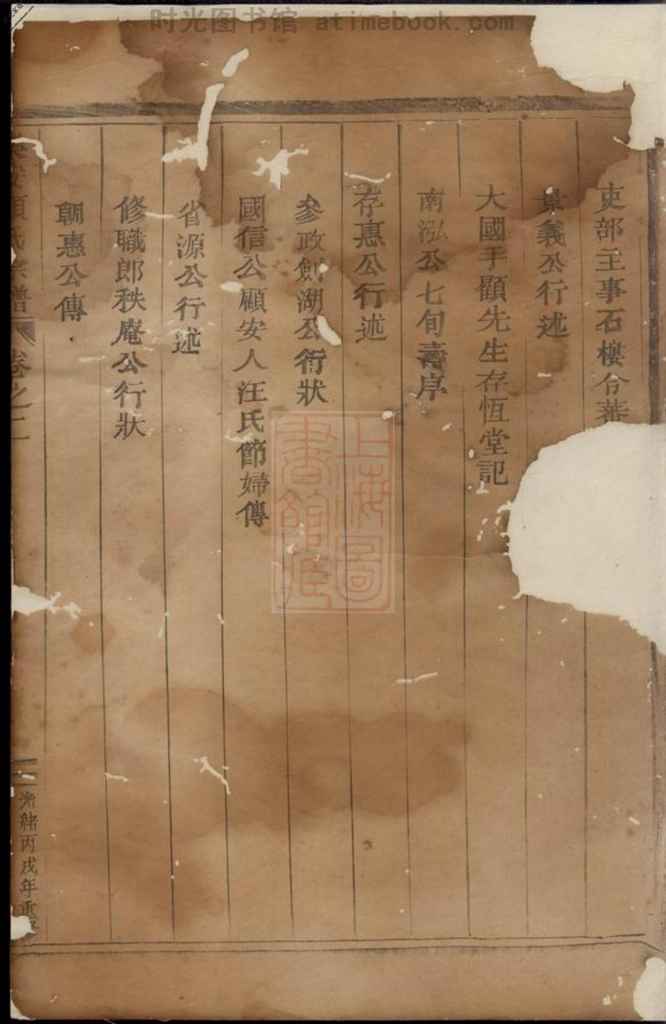 时光图书馆 atimebook.com
吏部主事石樓令
義公行述
大國手顧先生存恆堂記
南泓公七旬壽序
存惠公行述
參政劍湖公行狀
國信公顧安人汪氏節婦傳
省源公行述
修職郎秩庵公行狀
鵬惠公傳
顧氏宗譜 卷之二
光緒丙戌年重
上海圖書館藏